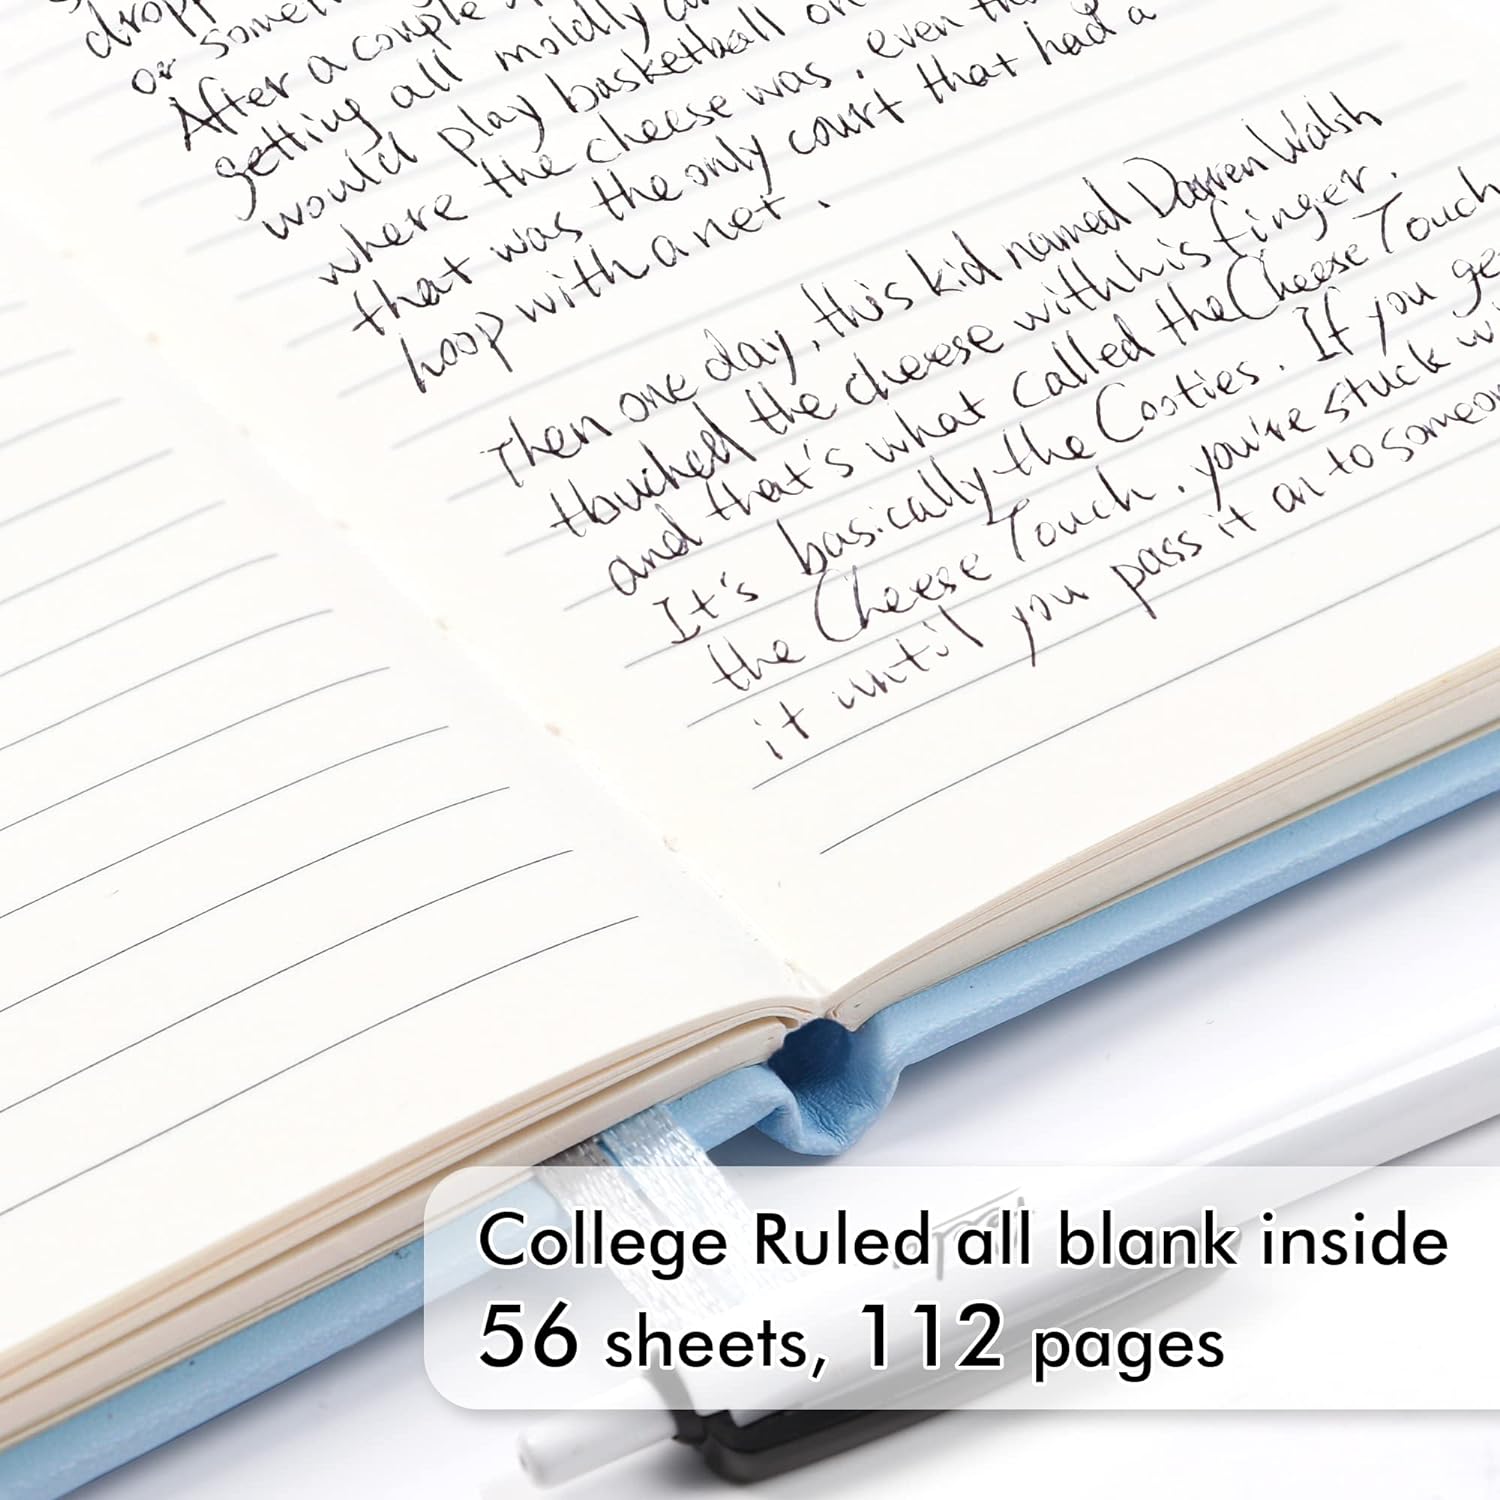 or
After a couple
getting all moldly
would play basketball on
where the cheese was, even
that was the only court that had a
hoop with a net.
Then one day, this kid named Darren Walsh
thouched the cheese with his finger.
and that's what called the Cheese Touch
It's basically the Cooties. If you
the Cheese Touch, you're stuck
it until you pass it on to
College Ruled all blank inside
56 sheets, 112 pages